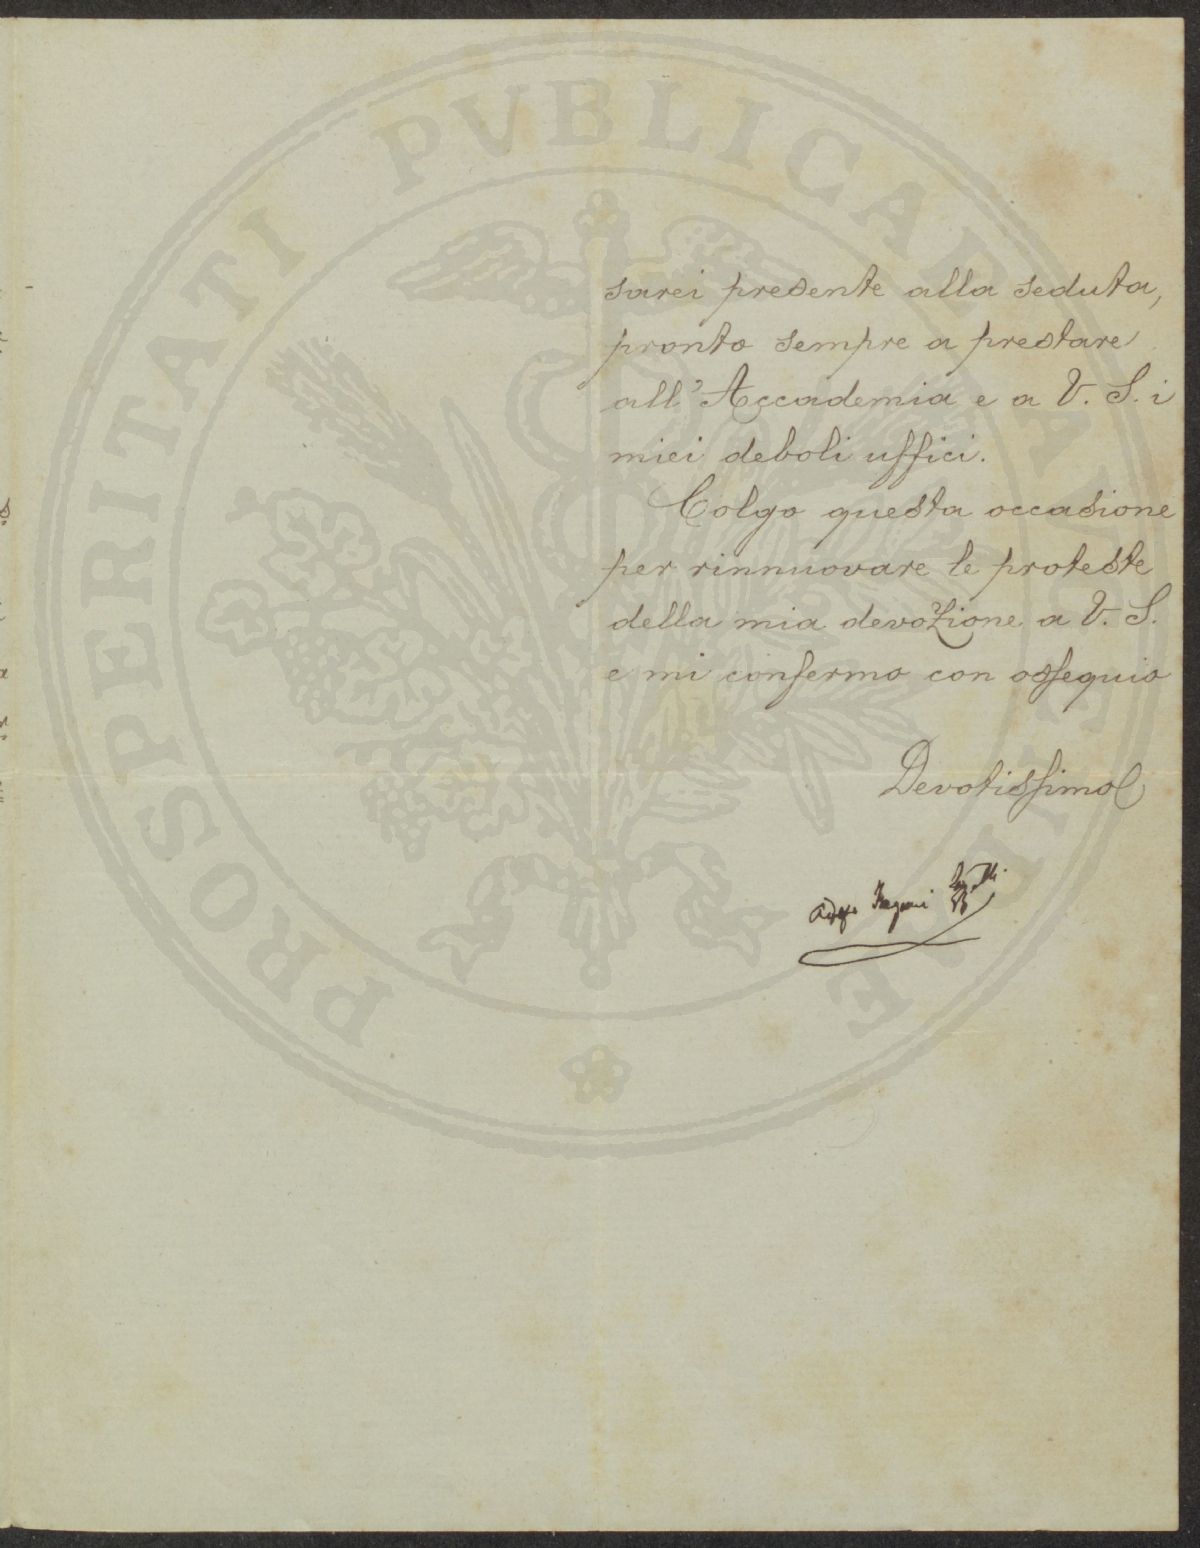 sarei presente alla seduta,
pronto sempre a prestare
all'Accademia e a V. S. i
miei deboli uffici.
Colgo questa occasione
per rinnuovare le proteste
della mia devozione a V. S.
e mi confermo con ossequio
Devotissimo
PROSPERITATI PVBLICAE AVGENDAE